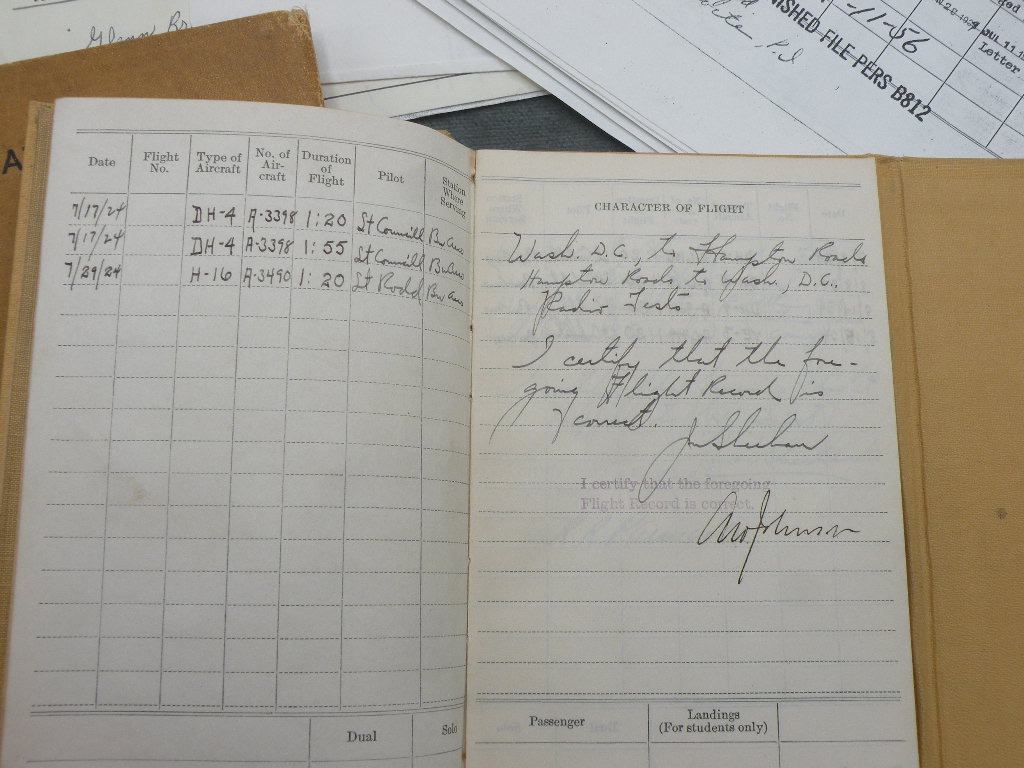 Glenn
-11-56
NISHED FILE PERS B812
JUL 11
Letter
A
Date Flight No. Type of Aircraft No. of Air-craft Duration of Flight Pilot Station Where Serving
7/17/24 DH-4 A-3398 1:20 Lt Councill Bu Aero
7/17/24 DH-4 A-3398 1:55 Lt Councill Bu Aero
7/29/24 H-16 A-3490 1:20 Lt Rodd Bu Aero
Dual Solo
CHARACTER OF FLIGHT
Wash. D.C., to Hampton Roads
Hampton Roads to Wash., D.C.
Radio Tests
I certify that the fore-
going Flight Record is
correct.
Sheehan
I certify that the foregoing
Flight Record is correct.
Johnson
Passenger Landings
(For students only)